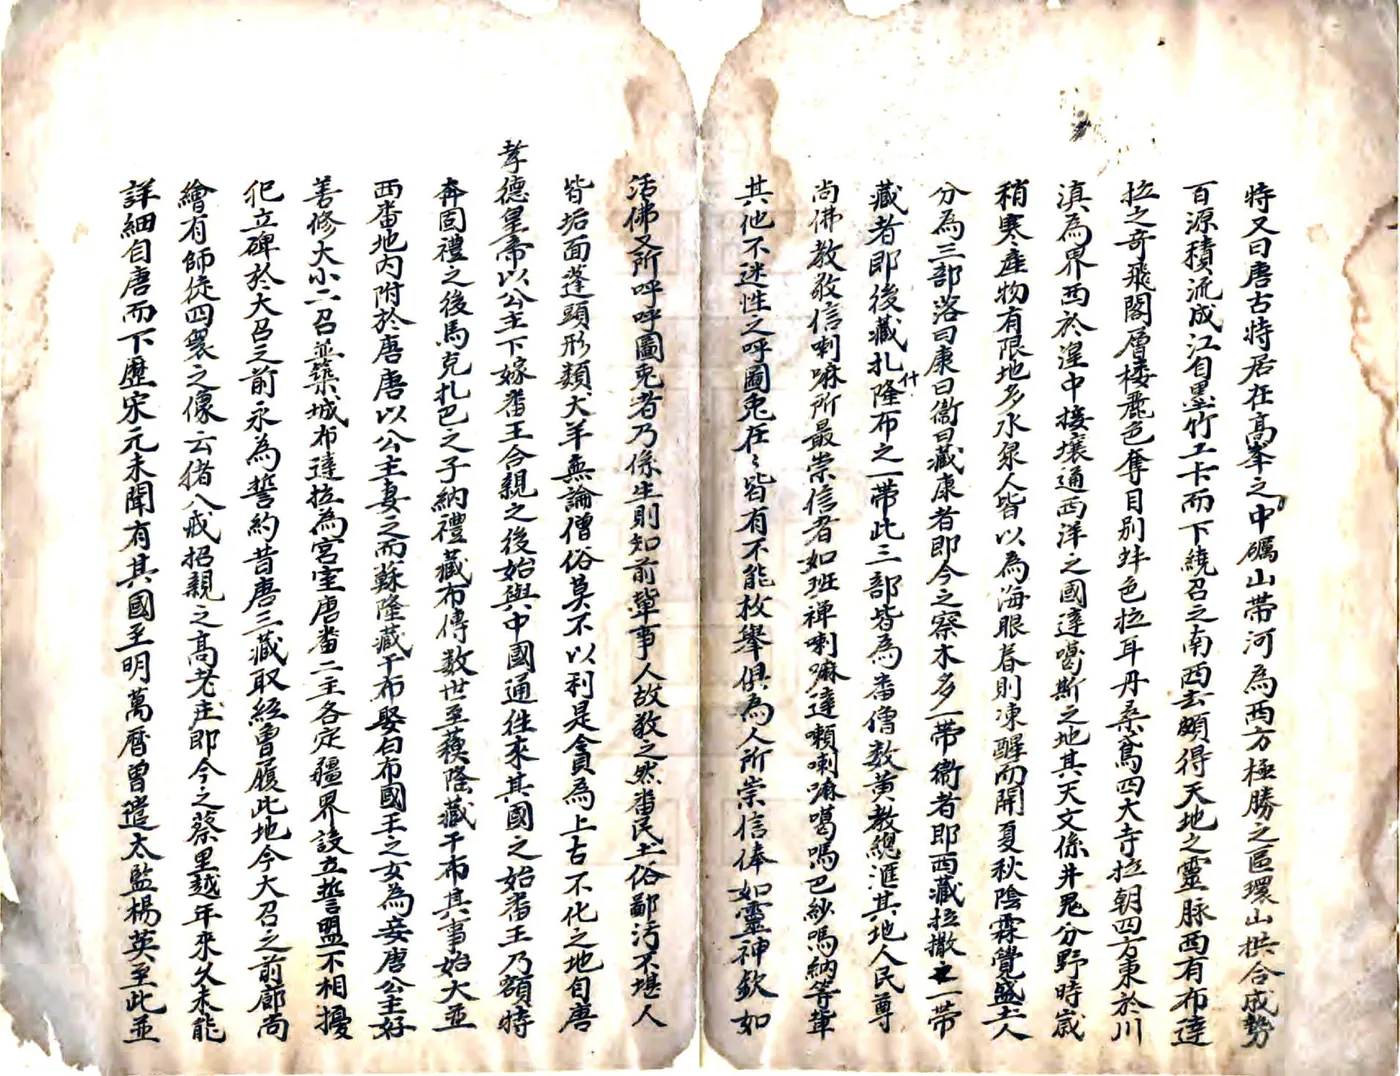 特又曰唐古特居在高峯之中礪山帶河為西方極勝之區環山拱合成勢
百源積流成江自墨竹工卡而下繞召之南西去頗得天地之靈脉西有布達
拉之奇飛閣層樓麗色奪目別蚌色拉耳丹桑鳶四大寺拉朝四方東於川
滇為界西於湟中接壤通西洋之國達噶斯之地其天文係井鬼分野時歲
稍寒產物有限地多水泉人皆以為海眼春則凍醒而開夏秋陰霖覺盛土人
分為三部落曰康曰衞曰藏康者即今之察木多一帶衞者即西藏拉撒之一帶
藏者即後藏扎什隆布之一帶此三部皆為番僧敎黃教總滙其地人民尊
尚佛教敬信喇嘛所最崇信者如班禪喇嘛達賴喇嘛噶嗎巴紗嗎納等輩
其他不迷性之呼圖兎在〻皆有不能枚舉俱為人所崇信俸如靈神欽如
活佛又所呼呼圖兎者乃係生則知前輩事人故敬之然番民土俗鄙污不堪人
皆垢面蓬頭形類犬羊無論僧俗莫不以利是貪為上古不化之地自唐
孝德皇帝以公主下嫁番王合親之後始與中國通往來其國之始番王乃額特
奔固禮之後馬克扎巴之子納禮藏布傳数世至蘓隆藏干布其事始大並
西番地內附於唐唐以公主妻之而蘇隆藏干布娶白布國王之女為妾唐公主好
善修大小二召並築城布達拉為宮室唐番二主各定疆界設立誓盟不相擾
犯立碑於大召之前永為誓約昔唐三藏取經曾履此地今大召之前廊尚
繪有師徒四衆之像云猪八戒招親之高老庄即今之蔡里越年來久未能
詳細自唐而下歷宋元未聞有其國至明萬曆曾遣太監楊英至此並